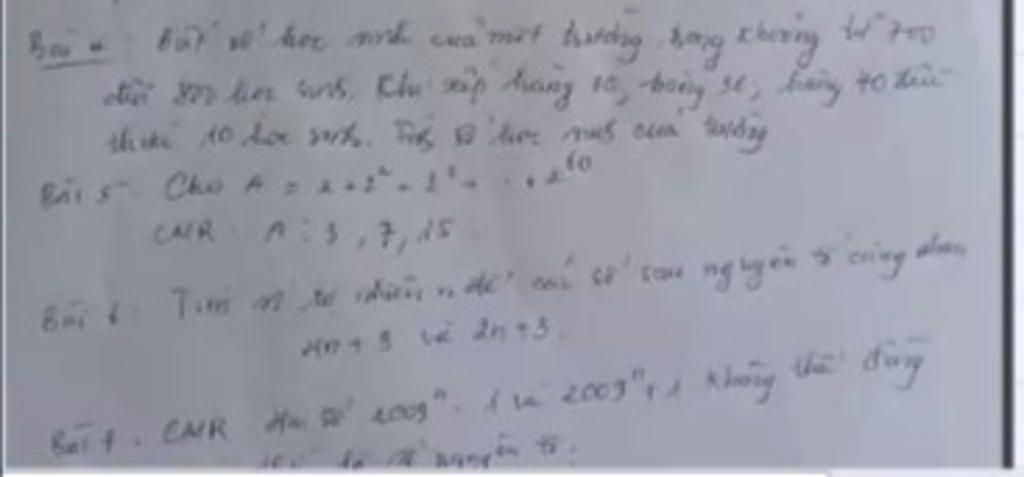 Bài 4: Biết số học sinh của một trường trong khoảng từ 700
đến 800 học sinh. Khi xếp hàng 30, hàng 36, hàng 40 đều
thừa 10 học sinh. Tính số học sinh của trường
Bài 5. Cho A = 2 + 2² + 2³ + ... + 2⁶⁰
CMR A ⋮ 3, 7, 15
Bài 6: Tìm số tự nhiên n để các số sau nguyên tố cùng nhau
4n + 3 và 2n + 3.
Bài 7. CMR Hai số 2003ⁿ - 1 và 2003ⁿ + 1 không thể đồng
thời là số nguyên tố.